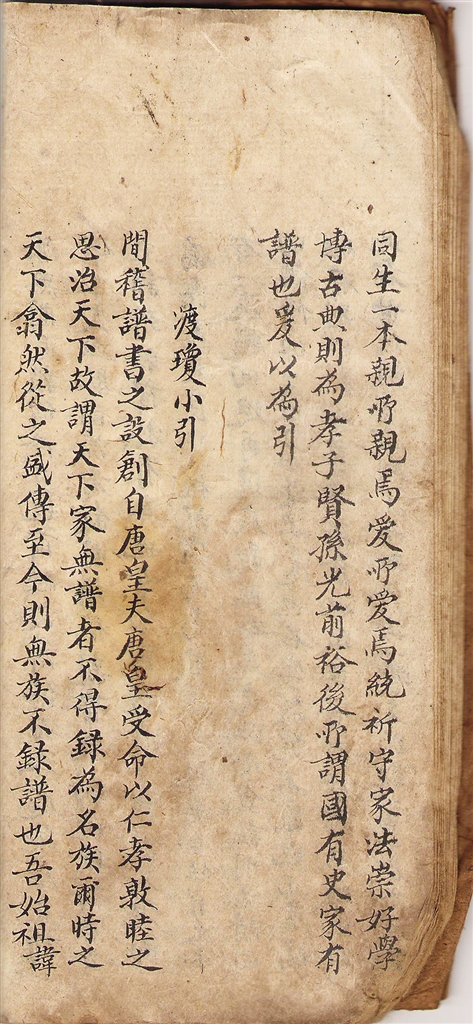 同生一本親所親焉愛所愛焉統祈守家法崇好學
博古典則為孝子賢孫光前裕後所謂國有史家有
譜也爰以為引
渡瓊小引
間稽譜書之設創自唐皇夫唐皇受命以仁孝敦睦之
思治天下故謂天下家無譜者不得録為名族爾時之
天下翕然從之盛傳至今則無族不録譜也吾始祖諱